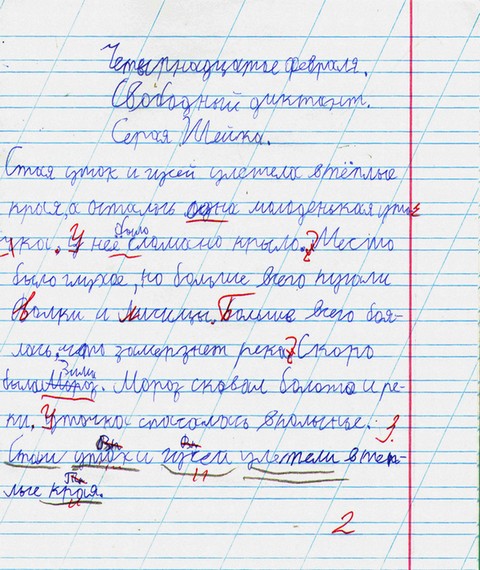 Четырнадцатое февраля.
Свободный диктант.
Серая Шейка.
Стая уток и гусей улетела в тёплые
края, а осталась одна молоденькая уто
чка. У неё было сломано крыло. Место
было глухое, но больше всего пугали
Волки и лисицы. Больше всего боя-
лась, что замерзнет река. Скоро
были Мороз. Зима Мороз сковал болота и ре-
ки. Уточка спасалась в полынье. 3.
Стаи уток и гусей улетели в теп-
лые края.
2